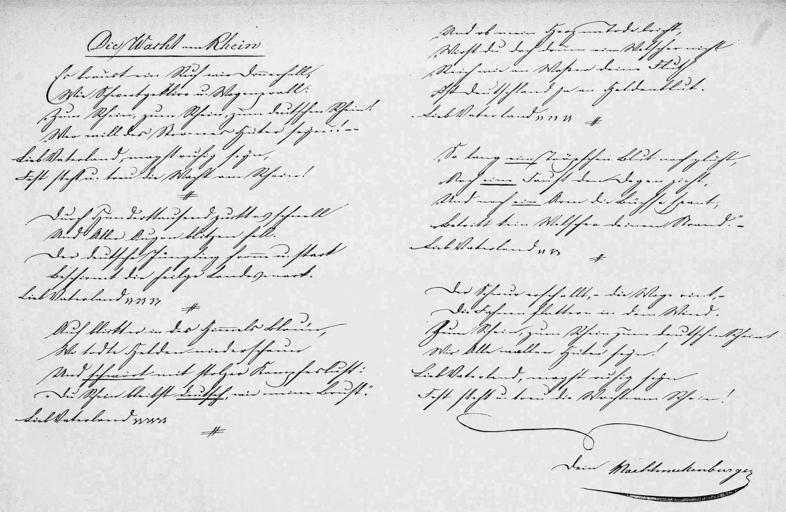 Die Wacht am Rhein
Es braust ein Ruf wie Donnerhall,
Wie Schwertgeklirr u. Wogenprall:
Zum Rhein, zum Rhein, zum deutschen Rhein!
Wer will des Stromes Hüter seyn! –
Lieb Vaterland, magst ruhig seyn,
Fest steht u. treu die Wacht am Rhein!
Durch Hunderttausend zuckt es schnell
Und Aller Augen blitzen hell.
Der deutsche Jüngling fromm u. stark
Beschirmt die heilge Landesmark.
Lieb Vaterland
Auf blickt er in des Himmels Blauen,
Wo todte Helden niederschauen
Und schwört mit stolzer Kampfeslust:
"Du Rhein bleibst deutsch, wie meine Brust."
Lieb Vaterland
"Und ob mein Herz im Tode bricht,
Wirst du doch drum ein Welscher nicht
Reich wie an Wasser deine Fluth
Ist Deutschland ja an Heldenblut.
Lieb Vaterland
So lang ein Tröpfchen Blut noch glüht,
Noch eine Faust den Degen zieht,
Und noch ein Arm die Büchse spannt,
Betritt kein Welscher deinen Strand." –
Lieb Vaterland
Der Schwur erschallt, – die Woge rinnt, –
Die Fahnen flattern in dem Wind.
Zum Rhein, zum Rhein, zum deutschen Rhein
Wir Alle wollen Hüter seyn!
Lieb Vaterland, magst ruhig seyn
Fest steht u. treu die Wacht am Rhein!